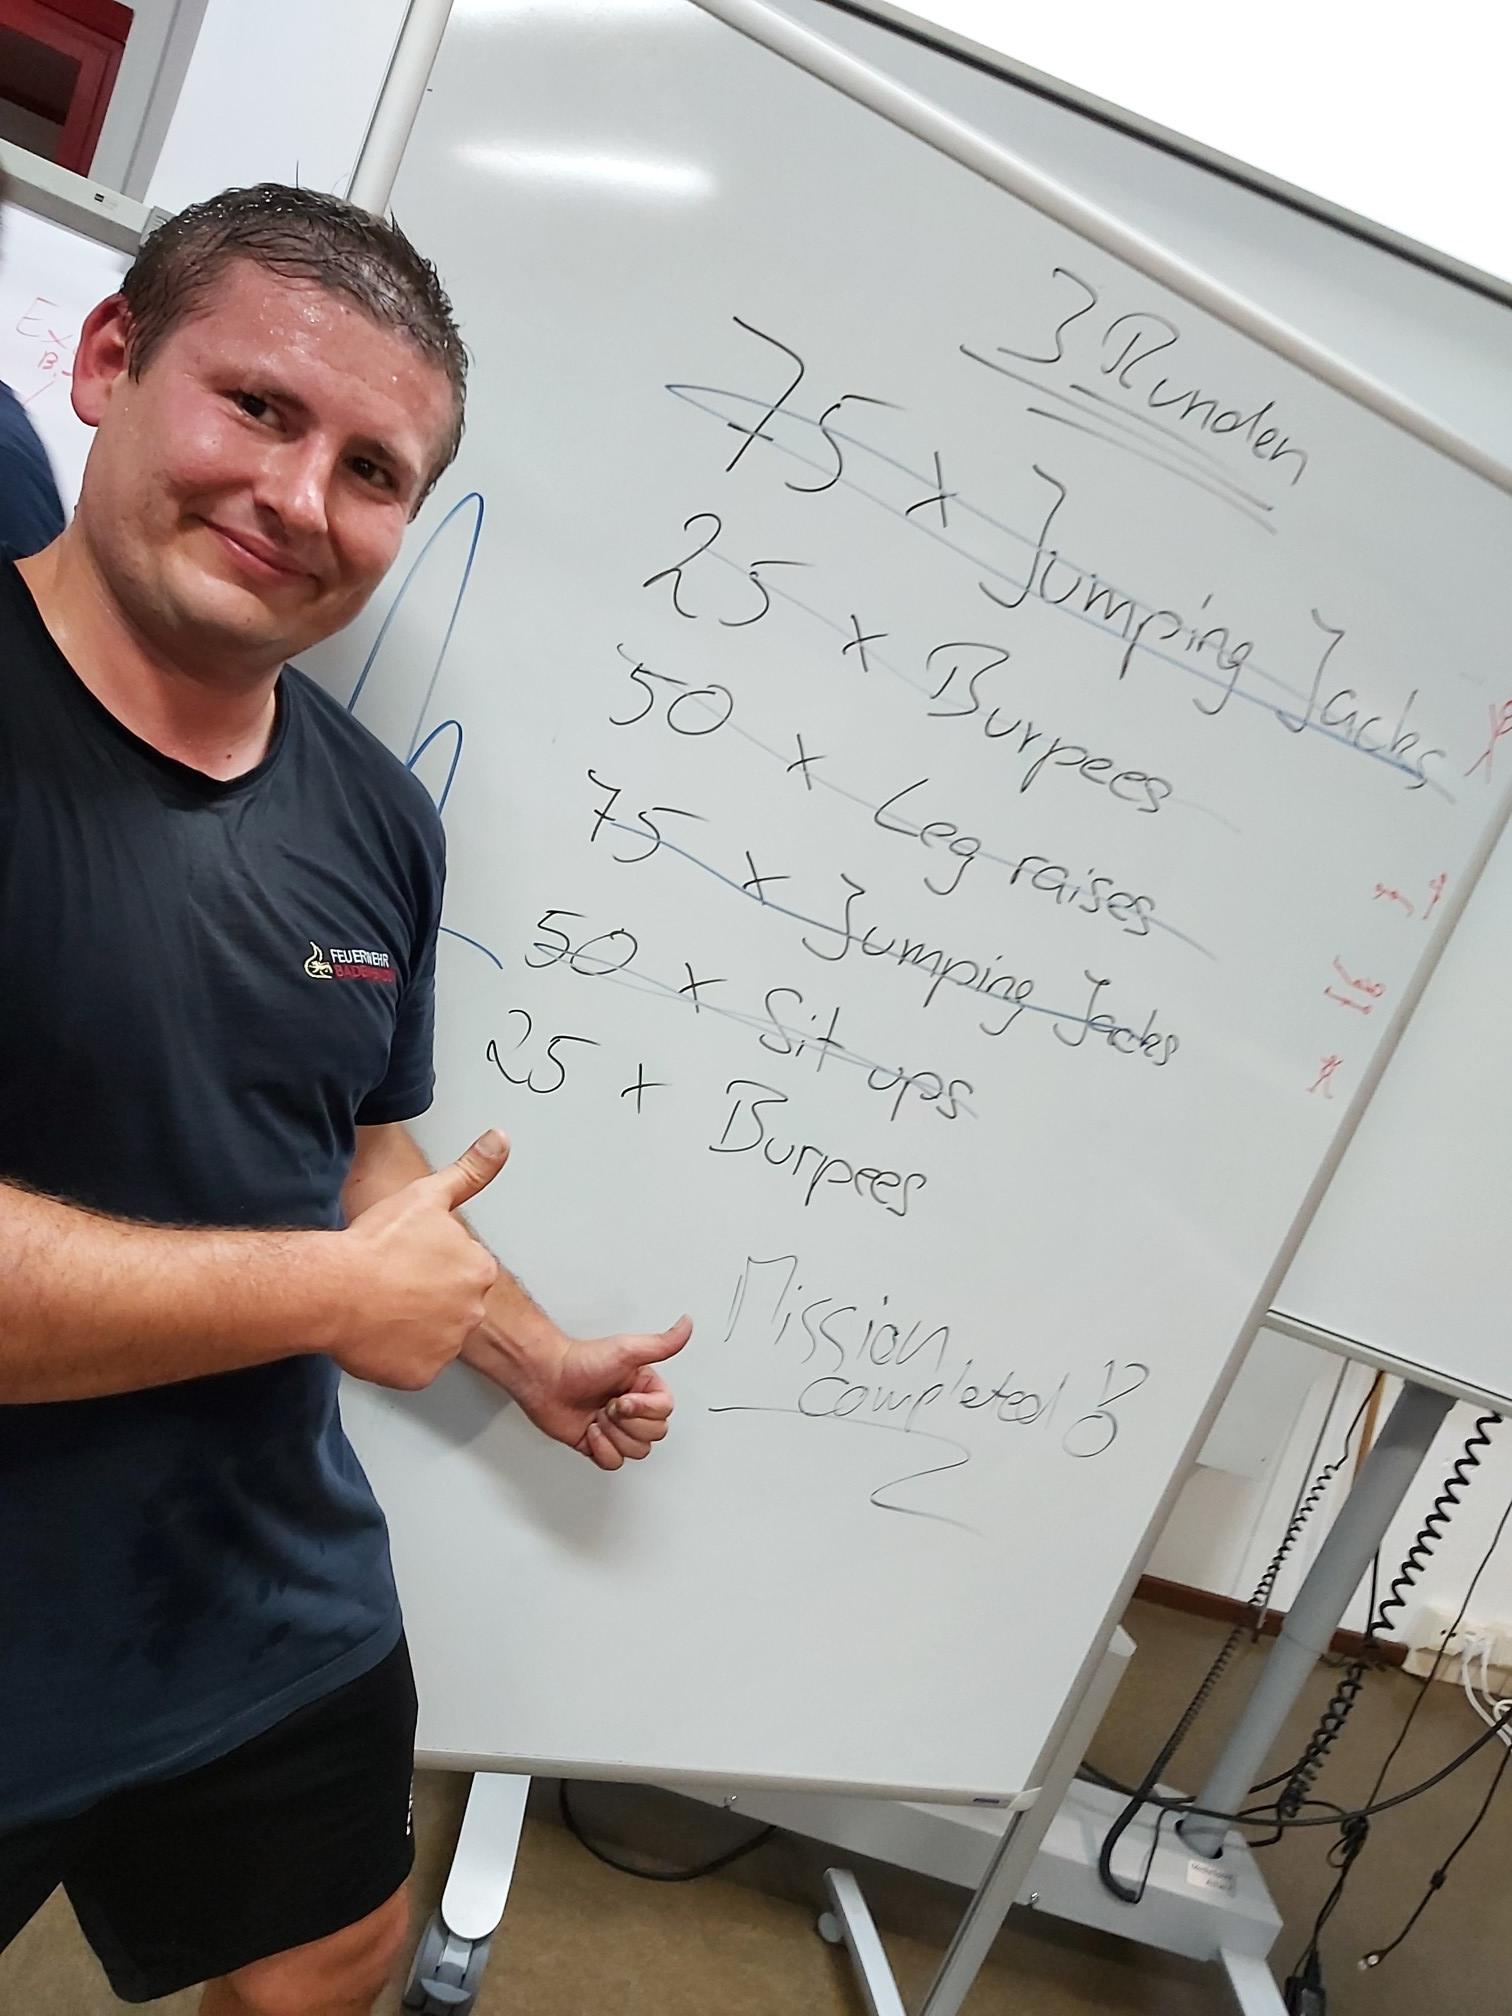 3 Runden
75 x Jumping Jacks
25 x Burpees
50 x Leg raises
75 x Jumping Jacks
50 x Sit ups
25 x Burpees
Mission
completed!
FEUERWEHR